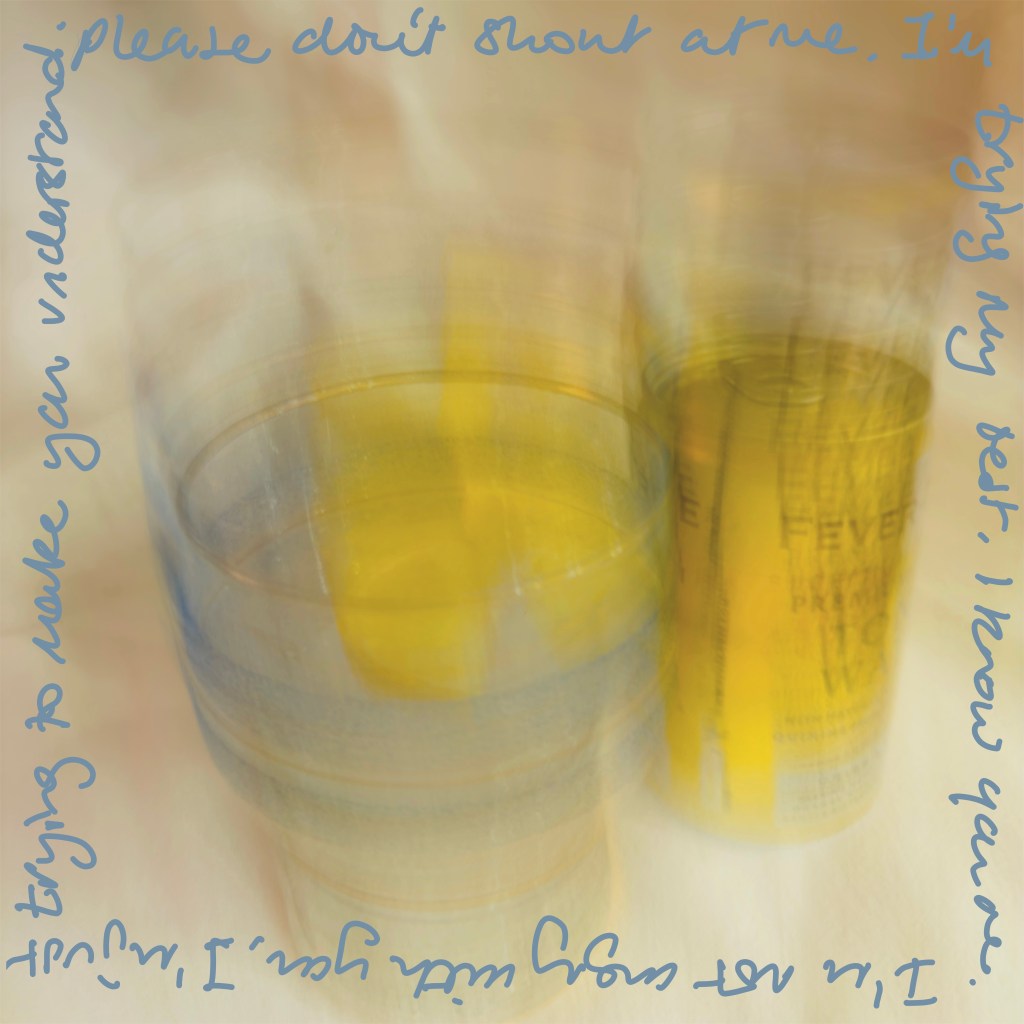 please don't shout at me. I'm
trying my best. I know you are.
I'm not angry with you, I'm just
trying to make you understand.
FEVER